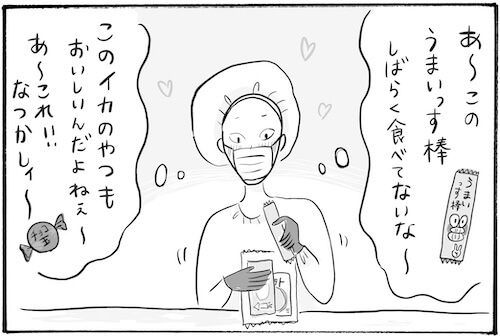 あ〜この
うまいっす棒
しばらく食べてないな〜
うまい
っす棒
このイカのやつも
おいしいんだよねぇ〜
あ〜これ!!
なつかしィ〜
チョコ
玉